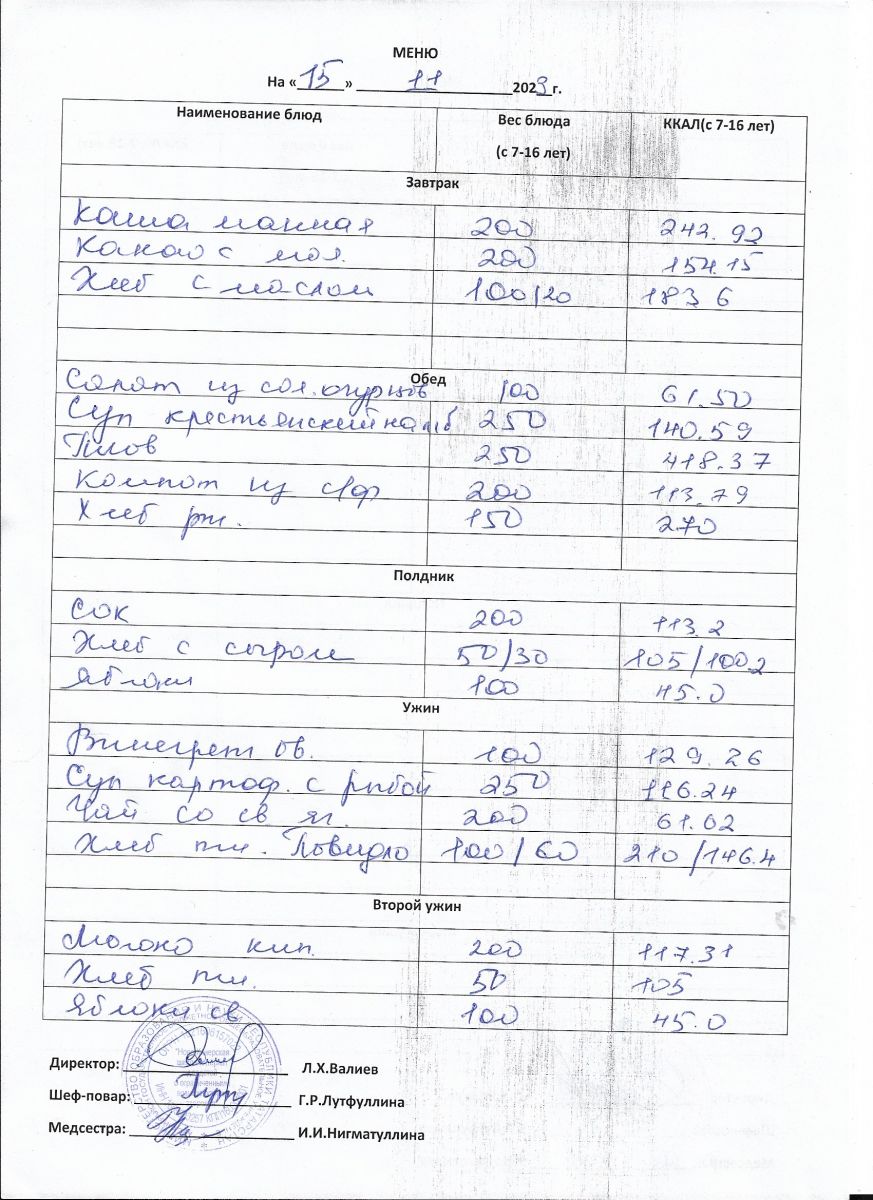 МЕНЮ
На «15» 11 2023 г.
Наименование блюд Вес блюда (с 7-16 лет) ККАЛ(с 7-16 лет)
Завтрак
Каша манная 200 242.92
Какао с мол. 200 154.15
Хлеб с маслом 100/20 183 6
Обед
Салат из сол. огурцов 100 61.50
Суп крестьянский на м/б 250 140.59
Плов 250 418.37
Компот из с/ф 200 113.79
Хлеб рж. 150 270
Полдник
Сок 200 113.2
Хлеб с сыром 50/30 105/100.2
Яблоки 100 45.0
Ужин
Винегрет ов. 100 129.26
Суп картоф. с рыбой 250 116.24
Чай со св яг. 200 61.02
Хлеб пш. Повидло 100/60 210/146.4
Второй ужин
Молоко кип. 200 117.31
Хлеб пш. 50 105
Яблоки св 100 45.0
Директор: Л.Х.Валиев
Шеф-повар: Г.Р.Лутфуллина
Медсестра: И.И.Нигматуллина